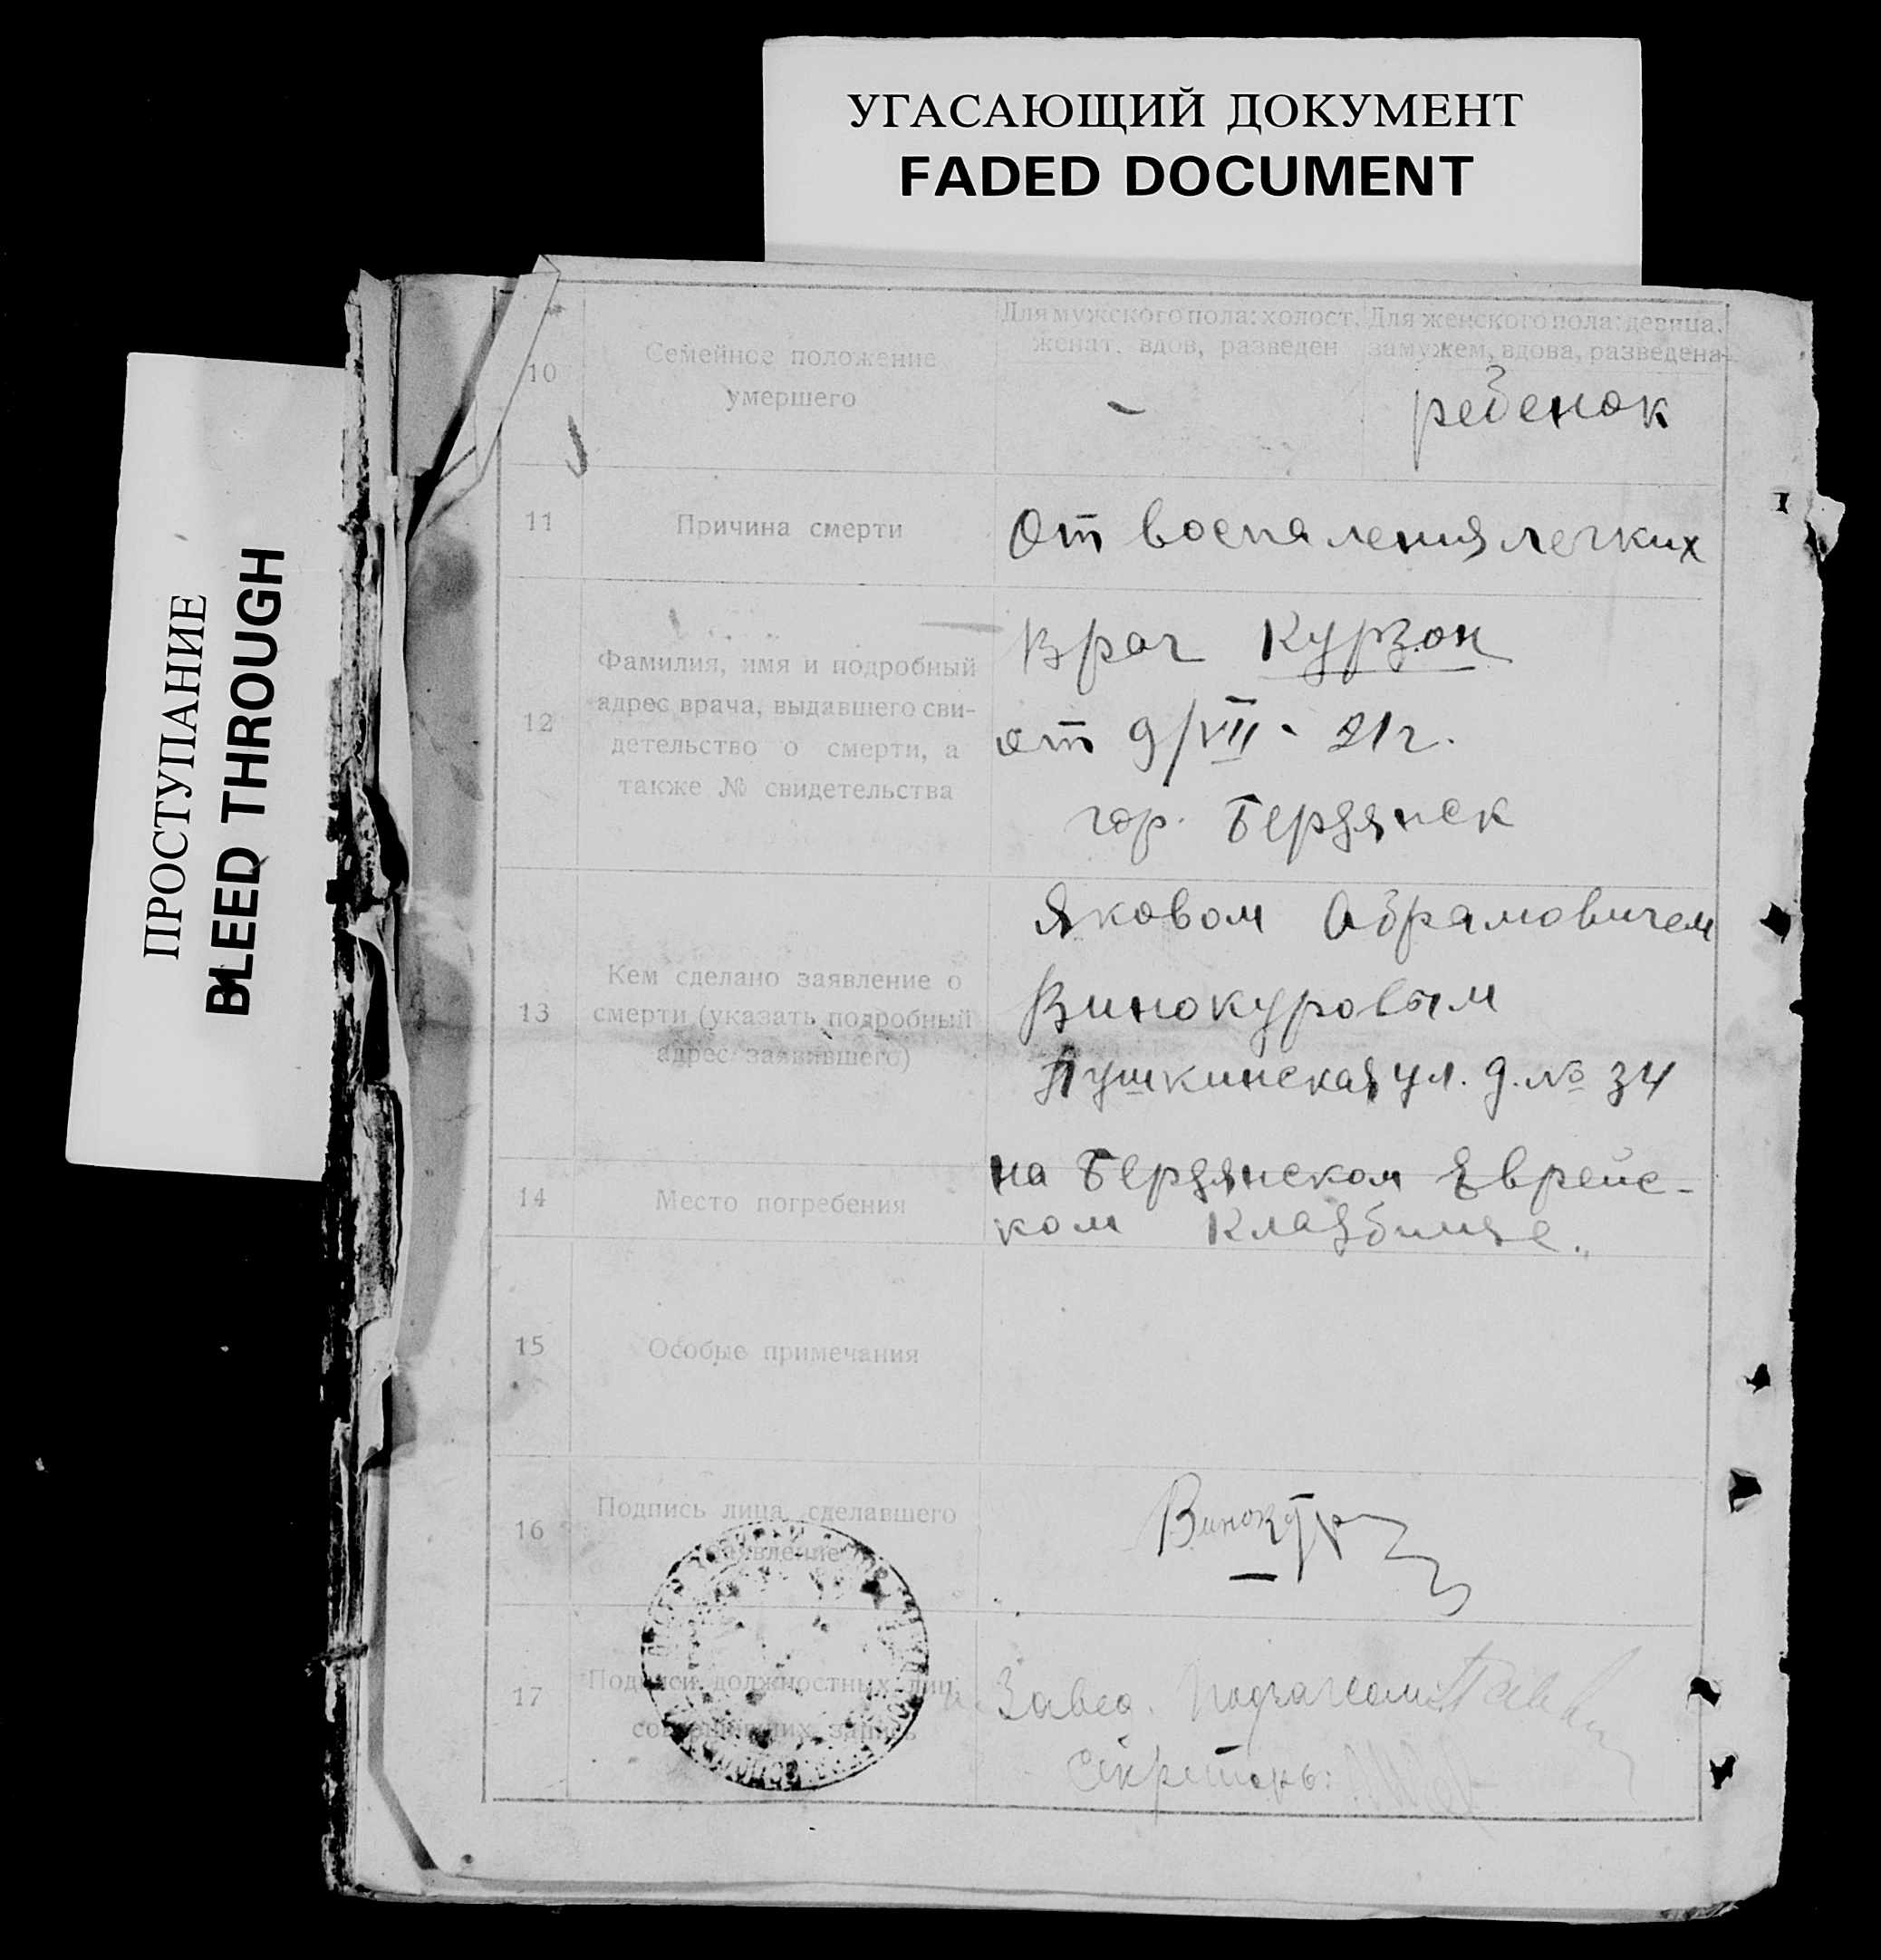 УГАСАЮЩИЙ ДОКУМЕНТ
FADED DOCUMENT
ПРОСТУПАНИЕ
BLEED THROUGH
10
Семейное положение
умершего
Для мужского пола: холост,
женат, вдов, разведен
-
Для женского пола: девица,
замужем, вдова, разведена
ребенок
11
Причина смерти
От воспаления легких
12
Фамилия, имя и подробный
адрес врача, выдавшего сви-
детельство о смерти, а
также № свидетельства
Врач Курзон
от 9/VII - 21 г.
гор. Бердянск
13
Кем сделано заявление о
смерти (указать подробный
адрес заявившего)
Яковом Абрамовичем
Винокуровым
Пушкинская ул. д. № 34
14
Место погребения
на Бердянском Еврейс-
ком кладбище.
15
Особые примечания
16
Подпись лица, сделавшего
заявление
Винокур
17
Подписи должностных лиц,
совершивших запись
Завед.
Секретарь: